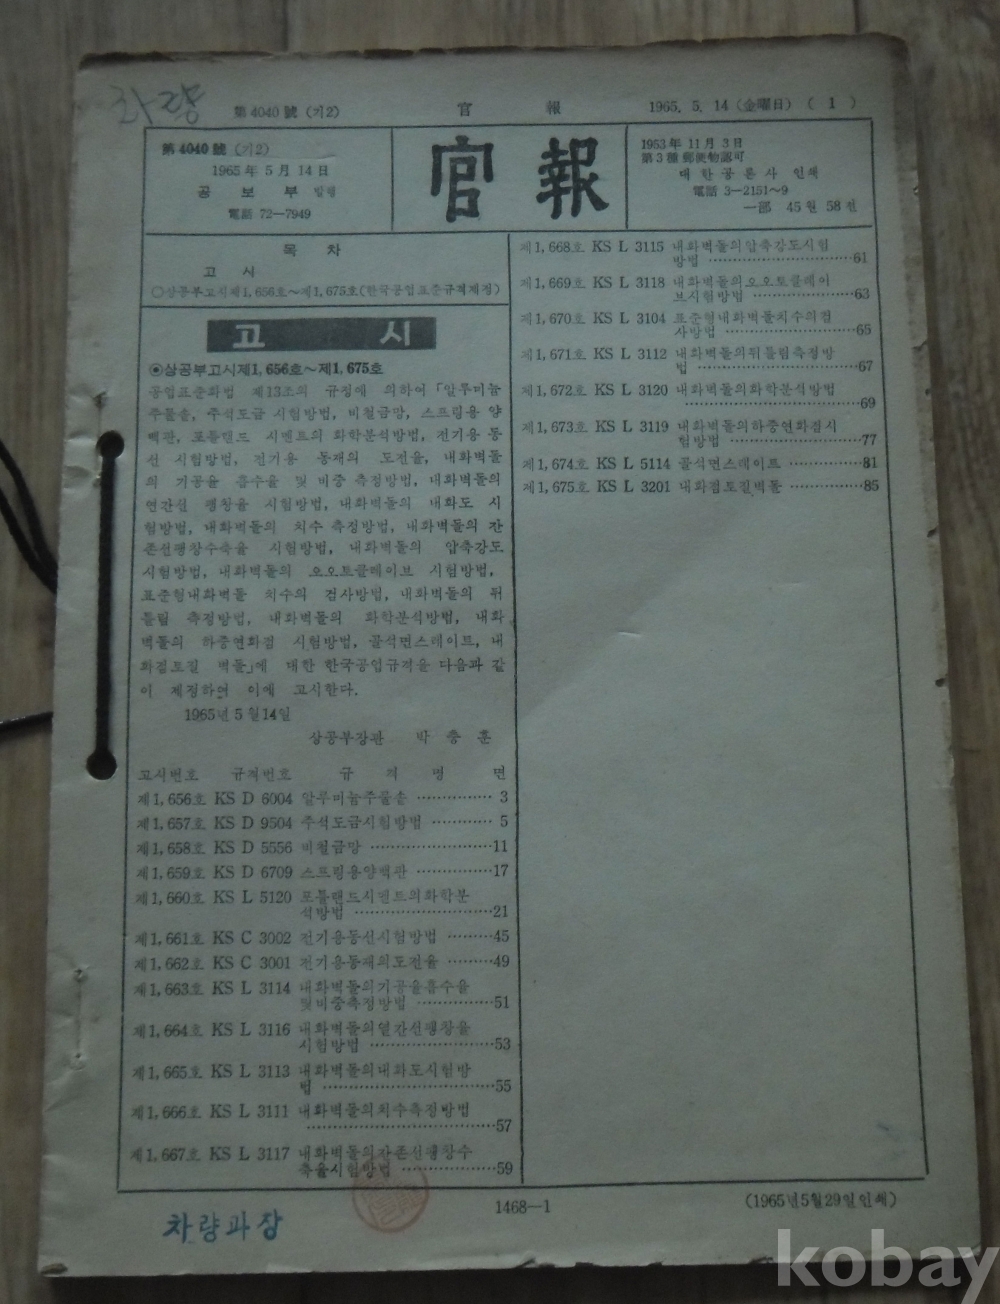 第4040號 (기2)
官 報
1965. 5. 14 (金曜日) ( 1 )
第4040號 (기2)
1965 年 5 月 14 日
공 보 부 발행
電話 72—7949
官 報
1953 年 11 月 3 日
第 3 種 郵便物認可
대한공론사 인쇄
電話 3—2151~9
一部 45원 58전
목 차
고 시
○상공부고시제1,656호~제1,675호(한국공업표준규격제정)
고 시
◉상공부고시제1,656호~제1,675호
공업표준화법 제13조의 규정에 의하여 「알루미늄
주물솥, 주석도금 시험방법, 비철금망, 스프링용 양
백판, 포틀랜드 시멘트의 화학분석방법, 전기용 동
선 시험방법, 전기용 동재의 도전율, 내화벽돌
의 기공율 흡수율 및 비중 측정방법, 내화벽돌의
열간선 팽창율 시험방법, 내화벽돌의 내화도 시
험방법, 내화벽돌의 치수 측정방법, 내화벽돌의 잔
존선팽창수축율 시험방법, 내화벽돌의 압축강도
시험방법, 내화벽돌의 오오토클레이브 시험방법,
표준형내화벽돌 치수의 검사방법, 내화벽돌의 뒤
틀림 측정방법, 내화벽돌의 화학분석방법, 내화
벽돌의 하중연화점 시험방법, 골석면스레이트, 내
화점토질 벽돌」에 대한 한국공업규격을 다음과 같
이 제정하여 이에 고시한다.
1965년 5월14일
상공부장관 박 충 훈
고시번호 규격번호 규 격 명 면
제1,656호 KS D 6004 알루미늄주물솥 ………… 3
제1,657호 KS D 9504 주석도금시험방법 ……… 5
제1,658호 KS D 5556 비철금망 ……………11
제1,659호 KS D 6709 스프링용양백판 …………17
제1,660호 KS L 5120 포틀랜드시멘트의화학분
석방법 ………………21
제1,661호 KS C 3002 전기용동선시험방법 ………45
제1,662호 KS C 3001 전기용동재의도전율 ………49
제1,663호 KS L 3114 내화벽돌의기공율흡수율
및비중측정방법 …………51
제1,664호 KS L 3116 내화벽돌의열간선팽창율
시험방법 ………………53
제1,665호 KS L 3113 내화벽돌의내화도시험방
법 ……………………55
제1,666호 KS L 3111 내화벽돌의치수측정방법
………………………57
제1,667호 KS L 3117 내화벽돌의잔존선팽창수
축율시험방법 ……………59
제1,668호 KS L 3115 내화벽돌의압축강도시험
방법 …………………61
제1,669호 KS L 3118 내화벽돌의오오토클레이
브시험방법 ……………63
제1,670호 KS L 3104 표준형내화벽돌치수의검
사방법 ………………65
제1,671호 KS L 3112 내화벽돌의뒤틀림측정방
법 ……………………67
제1,672호 KS L 3120 내화벽돌의화학분석방법
………………………69
제1,673호 KS L 3119 내화벽돌의하중연화점시
험방법 ………………77
제1,674호 KS L 5114 골석면스레이트 …………81
제1,675호 KS L 3201 내화점토질벽돌 …………85
1468—1
(1965년5월29일인쇄)
차량과장
kobay